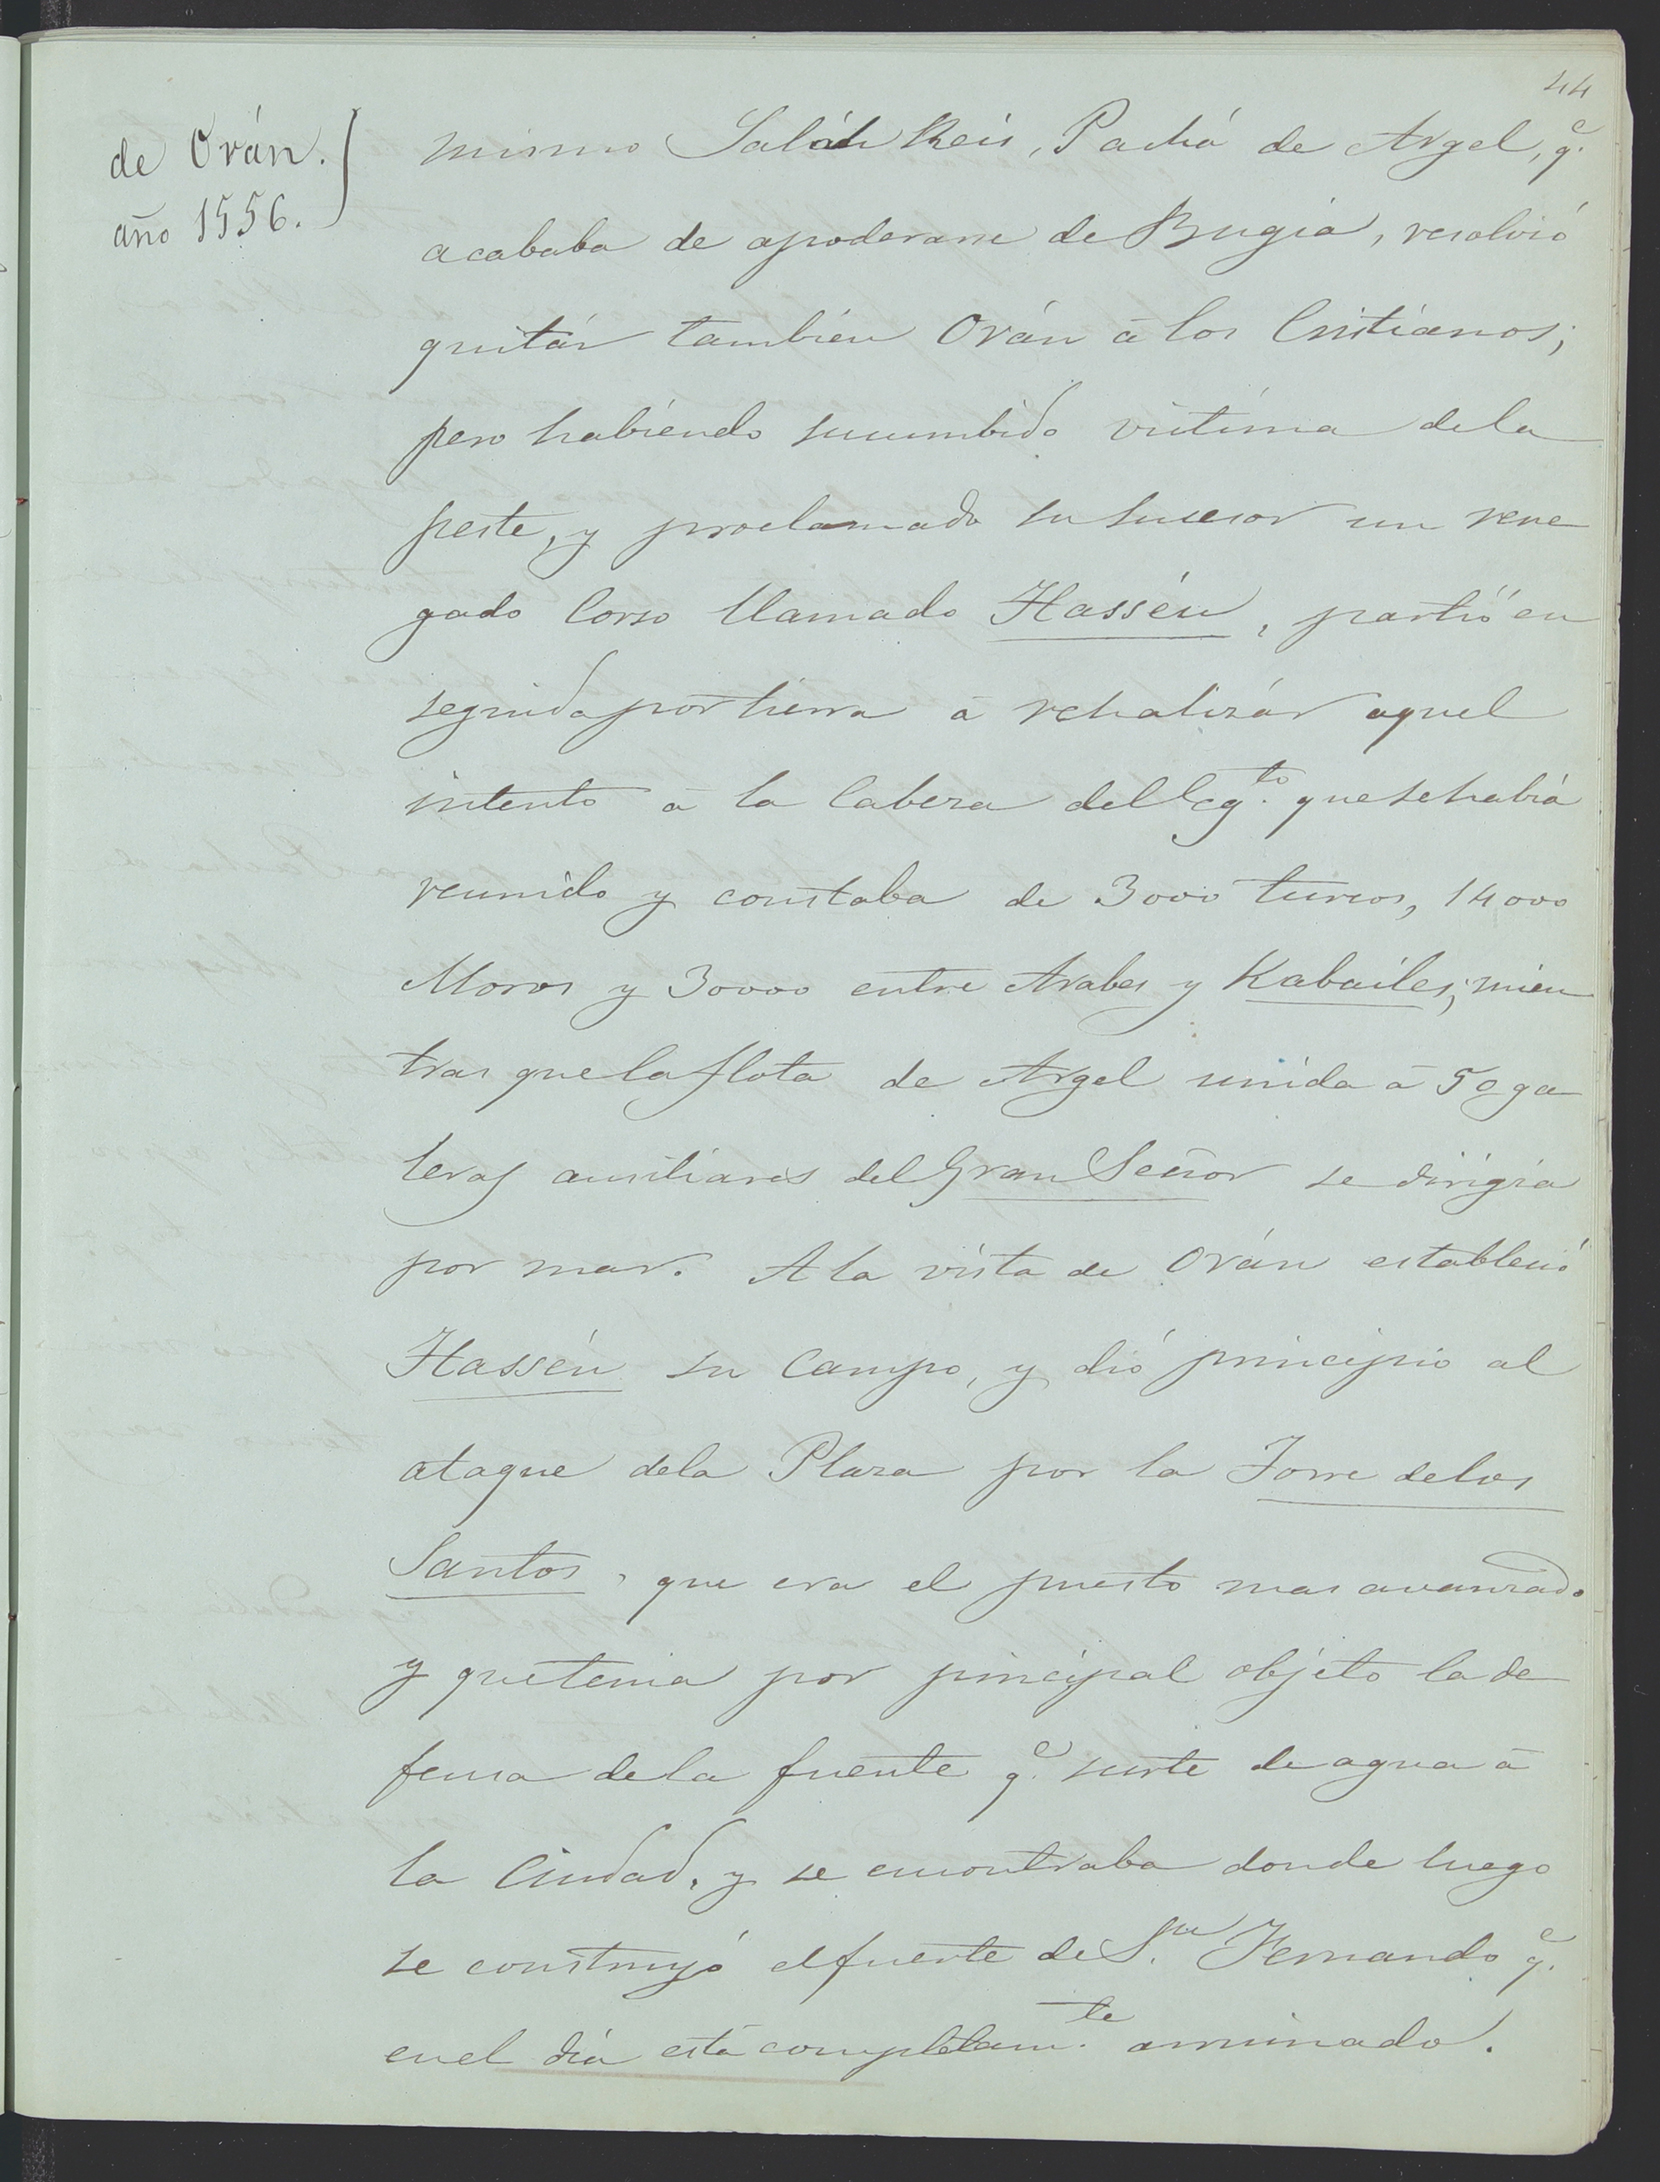 44
de Orán.
año 1556.
mismo Saláh Reis, Pachá de Argel, q.e
acababa de apoderarse de Bugía, resolvió
quitár también Orán á los Cristianos;
pero habiendo sucumbido victima dela
peste, y proclamado su sucesor un rene
gado Corso llamado Hassén, partió en
seguida por tierra á rehalizár aquel
intento á la Cabeza del Eg.to que se habiá
reunido y constaba de 3000 turcos, 14000
Moros y 30000 entre Arabes y Kabailes; mien
tras que la flota de Argel unida á 50 ga
leras auxiliares del Gran Señor se dirigia
por mar. A la vista de Orán estableció
Hassén su Campo, y dió principio al
ataque dela Plaza por la Torre delos
Santos, que era el puesto mas avanzado
y que tenia por principal objeto la de
fensa dela fuente q.e surte de agua á
la Ciudad, y se encontraba donde luego
se construyó el fuerte de S.n Fernando q.e
en el día está completam.te arruinado.